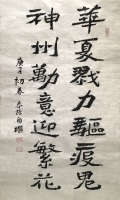 華夏戮力驅疫鬼
神州勠意迎繁花
庚子初春